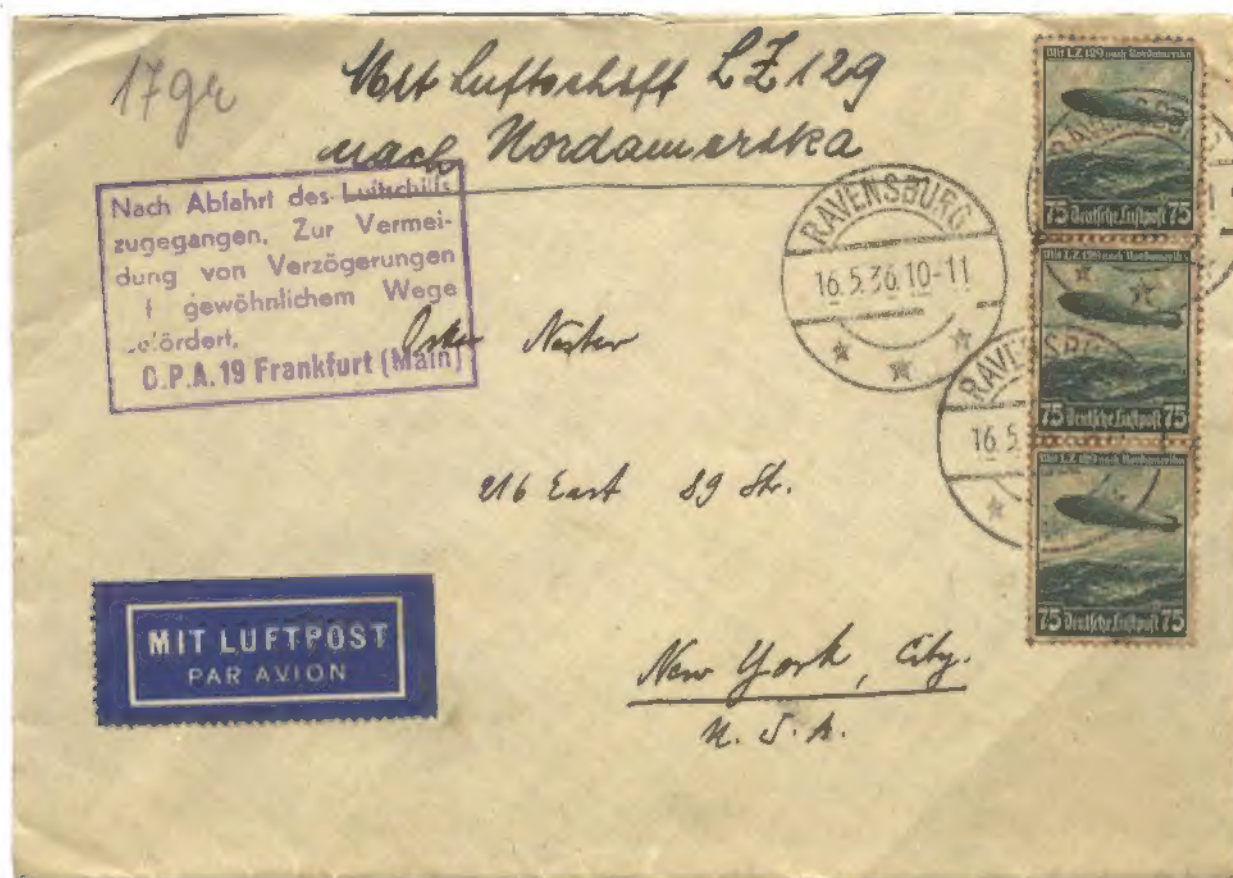 17gr
Mit Luftschiff LZ 129
nach Nordamerika
Nach Abfahrt des Luftschiffs
zugegangen. Zur Vermei-
dung von Verzögerungen
f gewöhnlichem Wege
efördert.
O.P.A. 19 Frankfurt (Main)
RAVENSBURG
16.5.36.10-11
RAVENSBU
16.5
RAVENSB
Mit LZ 129 nach Nordamerika
75 Deutsche Luftpost 75
Mit LZ 129 nach Nordamerika
75 Deutsche Luftpost 75
Mit LZ 129 nach Nordamerika
75 Deutsche Luftpost 75
Oskar Nester
216 East 89 Str.
New York, City.
U.S.A.
MIT LUFTPOST
PAR AVION